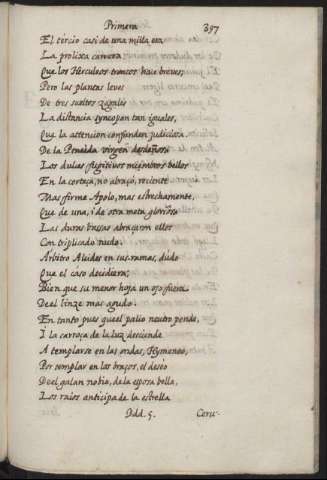 Primera 397
El tercio casi de una milla era
La prolixa carrera
Que los Herculeos troncos hace breues;
Pero las plantas leues
De tres sueltos zagales
La distancia syncopan tan iguales,
Que la attencion confunden judiciosa.
De la Peneida virgen desdeñosa
Los dulces fugitiuos miembros bellos
En la corteza, no abraçò, reciente
Mas firme Apolo, mas estrechamente,
Que de una, i de otra meta gloriosa
Las duras bassas abraçaron ellos
Con triplicado nudo.
Arbitro Alcides en sus ramas, dudo
Que el caso decidiera;
Bien que su menor hoja un ojo fuera
Del linze mas agudo.
En tanto pues que el palio neutro pende,
I la carroça de la luz desciende
A templarse en las ondas, Hymeneo,
Por templar en los braços, el deseo
Del galan nobio, de la esposa bella,
Los raios anticipa de la estrella
Ddd. 5. Ceru-